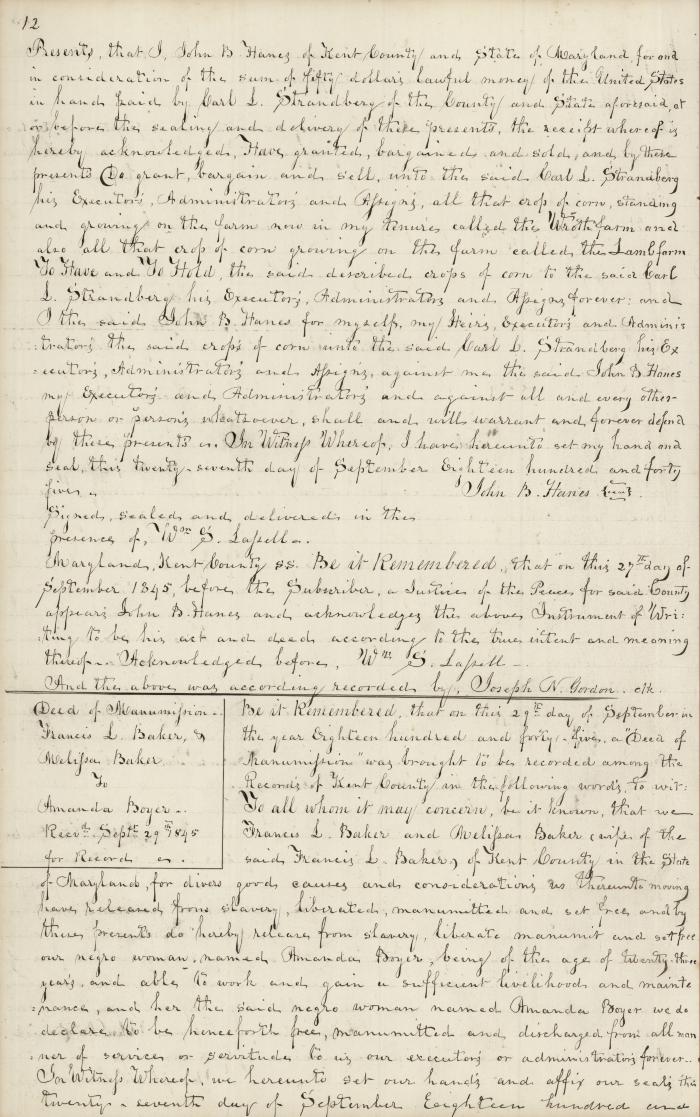 12
Presents, that I, John B. Hanes of Kent County and State of Maryland, for and
in consideration of the sum of fifty dollars lawful money of the United States
in hand paid by Carl L. Strandberg of the County and State aforesaid, at
or before the sealing and delivery of these presents, the receipt whereof is
hereby acknowledged, Have granted, bargained and sold, and by these
presents Do grant, bargain and sell, unto the said Carl L. Strandberg
his Executors, Administrators and Assigns, all that crop of corn, standing
and growing on the farm now in my tenure called the Wroth farm and
also all that crop of corn growing on the farm called the Lamb farm
To Have and To Hold, the said described crops of corn to the said Carl
L. Strandberg his Executors, Administrators and Assigns forever; and
I the said John B. Hanes for myself, my Heirs, Executors and Adminis
:trators the said crops of corn unto the said Carl L. Strandberg his Ex
:ecutors, Administrators and Assigns, against me the said John B Hanes
my Executors and Administrators and against all and every other
person or persons whatsoever, shall and will warrant and forever defend
by these presents. In Witness Whereof, I have hereunto set my hand and
seal, this twenty-seventh day of September Eighteen hundred and forty
five.
John B. Hanes {seal}.
Signed, sealed and delivered in the
presence of, Wm S. Lassell.
Maryland, Kent County ss. Be it Remembered, that on this 27th day of
September 1845, before the Subscriber, a Justice of the Peace for said County
appears John B. Hanes and acknowledges the above Instrument of Wri:
:ting to be his act and deed according to the true intent and meaning
thereof. Acknowledged before, Wm S. Lassell.
And the above was according recorded by, Joseph N. Gordon. clk.
Deed of Manumission.
Francis L. Baker, &
Melissa Baker
To
Amanda Boyer.
Recvd. Septr 29th 1845
for Record
Be it Remembered, that on this 29th day of September in
the year Eighteen hundred and forty-five, a "Deed of
Manumission" was brought to be recorded among the
Records of Kent County in the following words, to wit:
To all whom it may concern, be it known, that we
Francis L. Baker and Melissa Baker (wife of the
said Francis L. Baker) of Kent County in the State
of Maryland, for divers good causes and considerations us thereunto moving
have released from slavery, liberated, manumitted and set free and by
these presents do hereby release from slavery, liberate manumit and set free
our negro woman named Amanda Boyer, being of the age of twenty three
years, and able to work and gain a sufficient livelihood and mainte
:nance, and her the said negro woman named Amanda Boyer we do
declare to be henceforth free, manumitted and discharged from all man
:ner of services or servitude to us our executors or administrators forever.
In Witness Whereof, we hereunto set our hands and affix our seals this
twenty-seventh day of September Eighteen hundred and